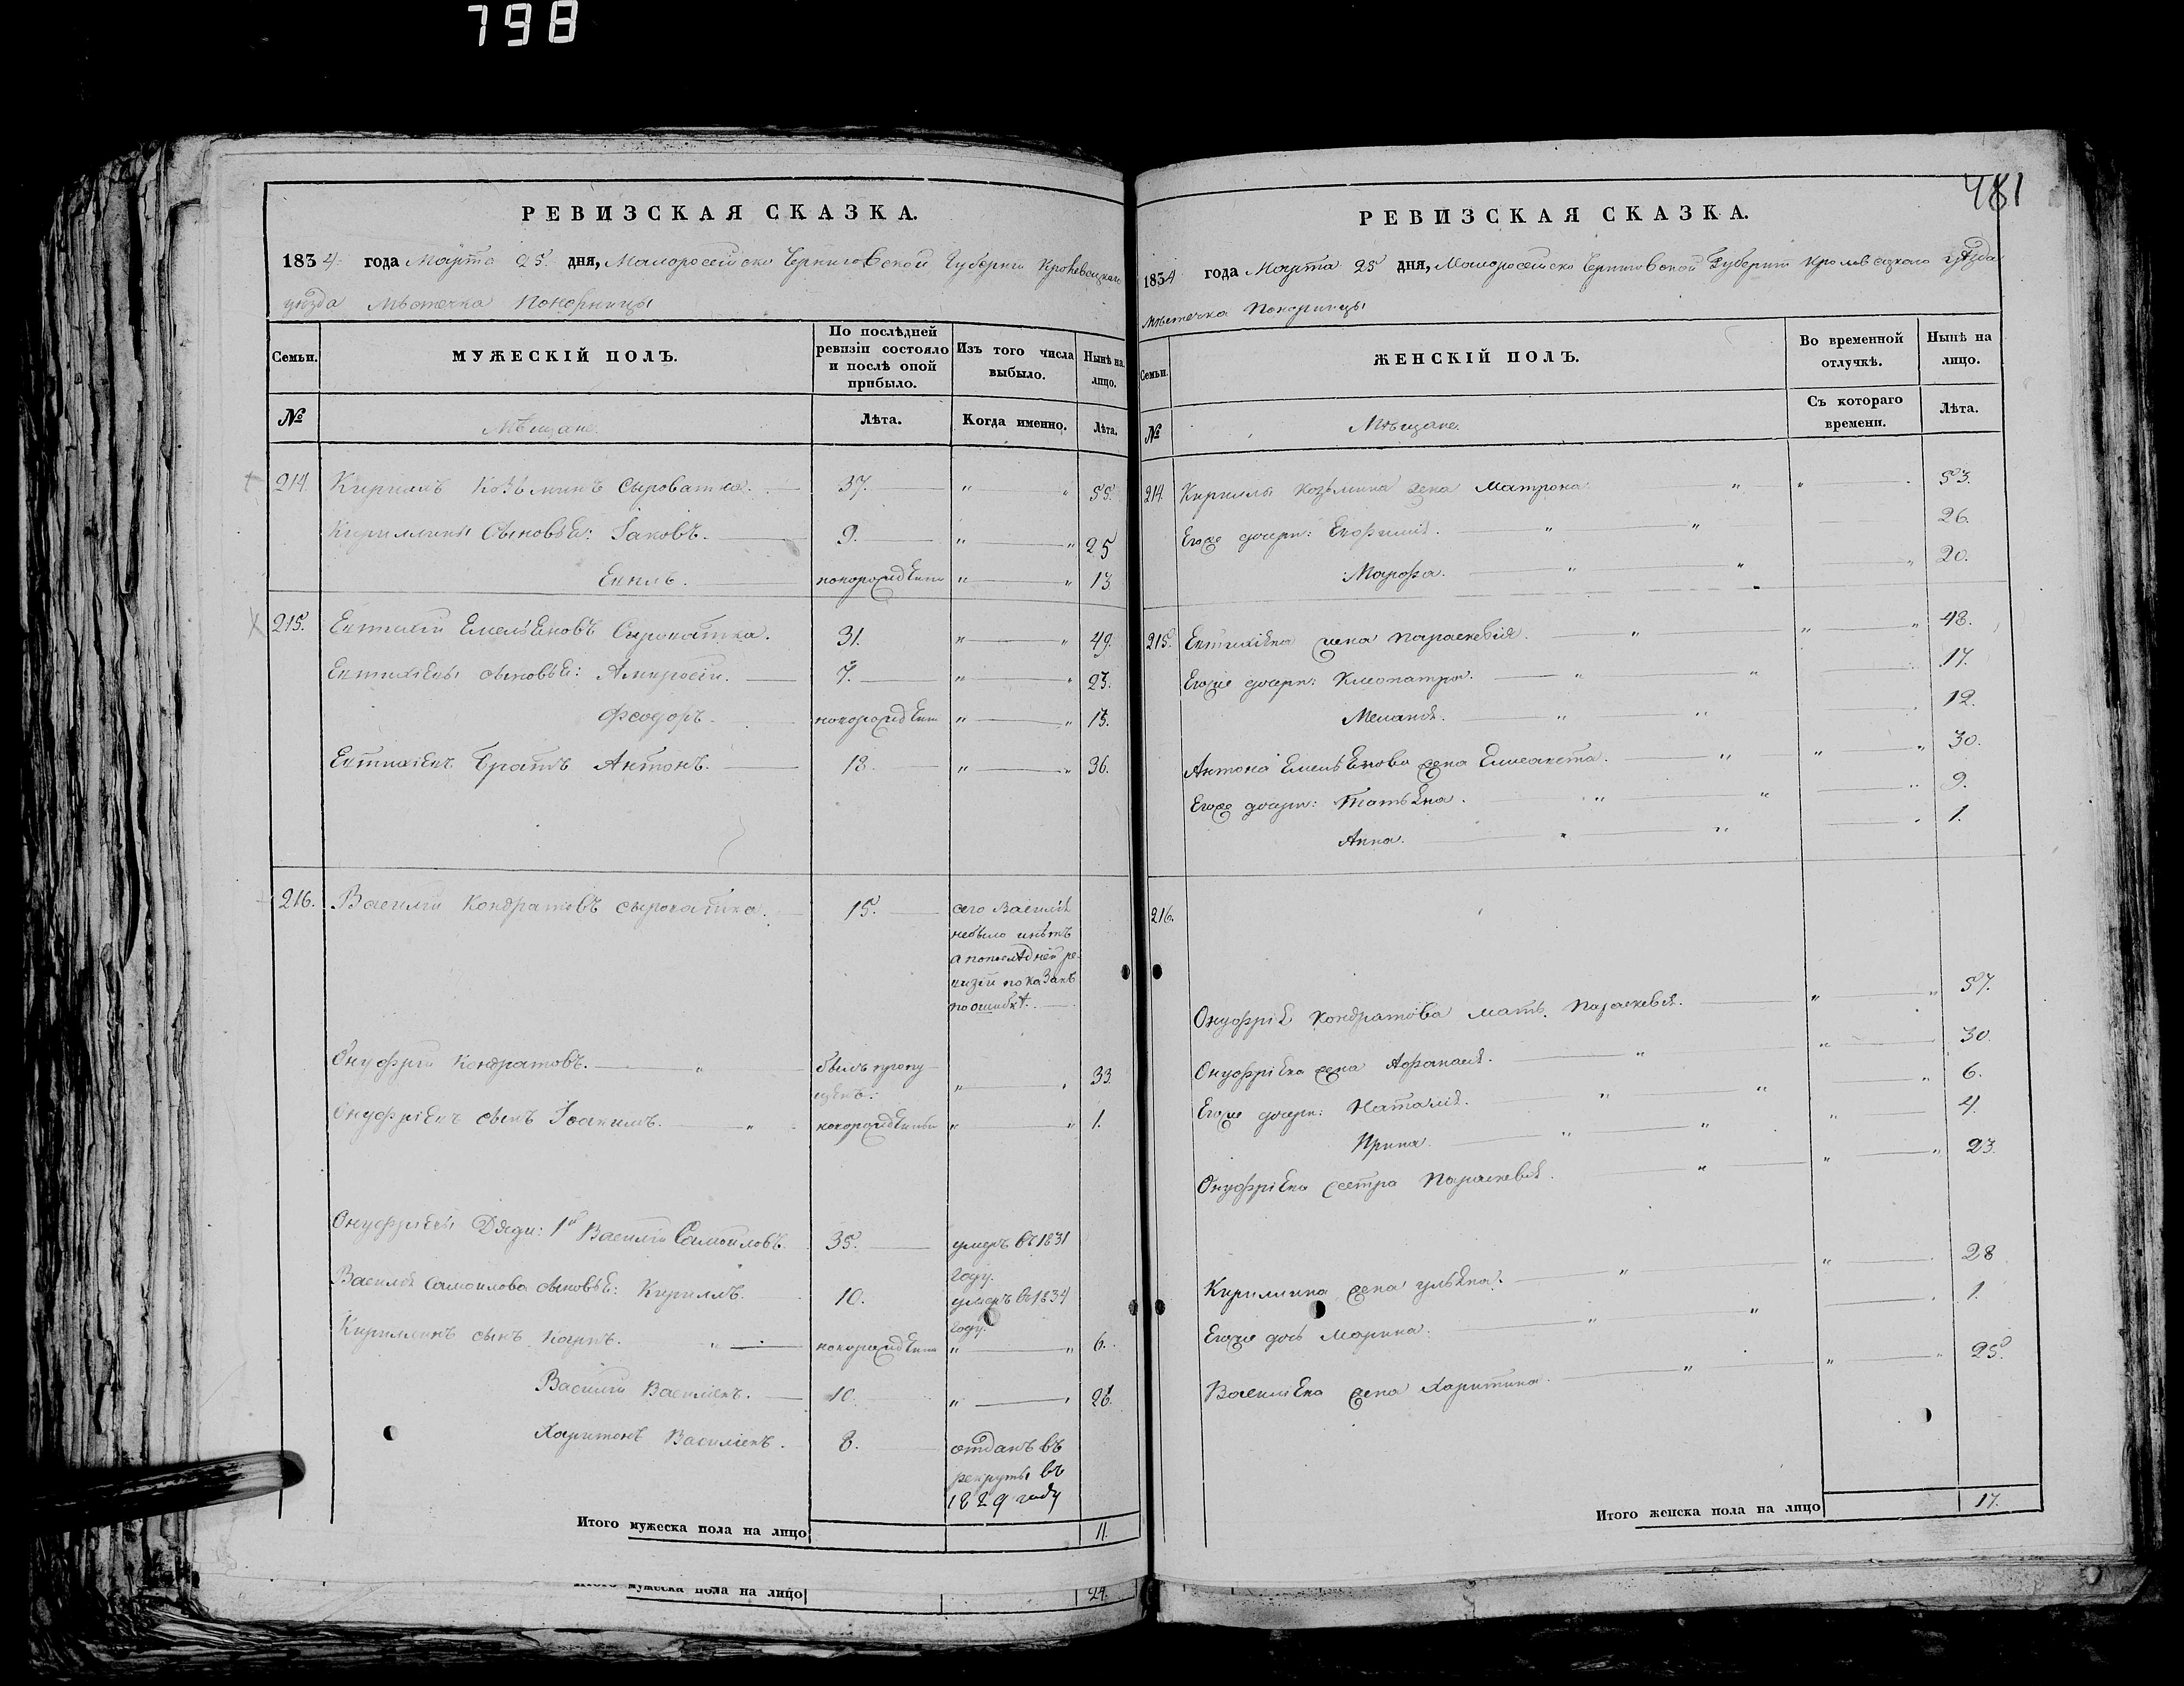 798
РЕВИЗСКАЯ СКАЗКА.
1834 года Марта 25 дня, Малоросейско Черниговской Губерніи Кролевецкаго
уезда Мѣстечка Понорницы
Семьи.
МУЖЕСКІЙ ПОЛЪ.
По послѣдней ревизіи состояло и послѣ оной прибыло.
Изъ того числа выбыло.
Нынѣ на лицо.
№
Мѣщане.
Лѣта.
Когда именно.
Лѣта.
214 Кириллъ Козьминъ Сыроватка. 37. " " 55.
Кириллины сыновья: Іаковъ. 9. " " 25
новорожденъ " " 13
215. Евтихій Емельяновъ Сыроватка. 31. " " 49.
Евтихіевы сыновья: Амвросій. 7. " " 23.
Феодоръ. новорожденъ " " 13.
Евтихіевъ братъ Антонъ. 18. " " 36.
216. Василій Кондратовъ сыроватка. 15. сего Василія
небыло инѣтъ
а попослѣдней ре-
визіи показанъ
по ошибкѣ.
Онуфрій Кондратовъ. " былъ пропу-
щенъ. " " 33.
Онуфріевъ сынъ Іоакимъ. " новорожденъ " " 1.
Онуфріевы Дяди: 1й Василій Самойловъ. 35. умеръ въ 1831
году.
Василія Самойлова сыновья: Кириллъ. 10. умеръ въ 1834
году.
Кириллинъ сынъ Карпъ. " новорожденъ " " 6.
Василій Василіевъ. 10. " " 26.
Харитонъ Василіевъ. 8. отданъ въ
рекруты въ
1829 году
Итого мужеска пола на лицо 11.
Итого мужеска пола на лицо 24.
481
РЕВИЗСКАЯ СКАЗКА.
1834 года Марта 25 дня, Малоросейско Черниговской Губерніи Кролевецкаго уѣзда
Мѣстечка Понорницы
Семьи.
ЖЕНСКІЙ ПОЛЪ.
Во временной отлучкѣ.
Нынѣ на лицо.
№
Мѣщане.
Съ котораго времени.
Лѣта.
214. Кирилы Козьмина жена Матрона " " 53.
Егоже дочери: Евфимія. " " 26.
Марфа. " " " 20.
215. Евтихіева жена Параскевія. " " " 48.
Егоже дочери: Клеопатра. " " 17.
Меланія. " " 12.
Антона Емельянова жена Елисавета. " " " 30.
Егоже дочери: Татьяна. " " 9.
Анна. " " 1.
216.
Онуфрія Кондратова мать Параскевія. " " 57.
Онуфріева жена Афанасія. " " 30.
Егоже дочери: Наталія. " " " 6.
Ирина. " " " 4.
Онуфріева сестра Параскевія. " " " 23.
Кириллина жена Ульяна. " " 28
Егоже дочь Марина. " " 1.
Василіева жена Харитина. " " 25.
Итого женска пола на лицо 17.